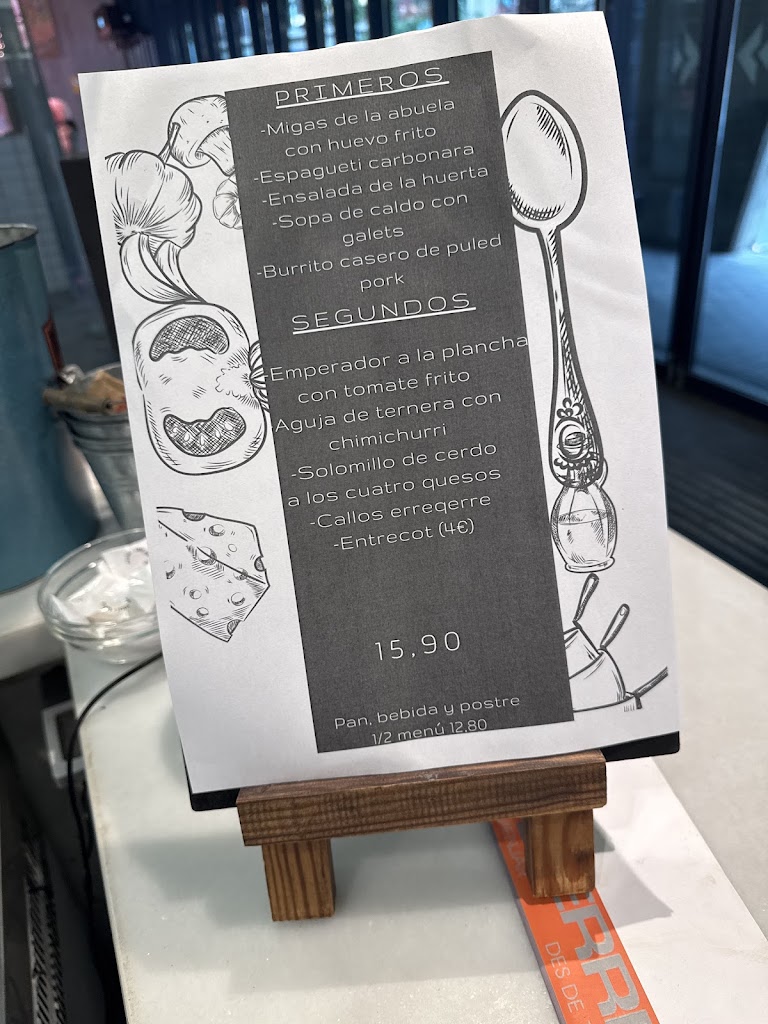 PRIMEROS
-Migas de la abuela
con huevo frito
-Espagueti carbonara
-Ensalada de la huerta
-Sopa de caldo con
galets
-Burrito casero de puled
pork
SEGUNDOS
-Emperador a la plancha
con tomate frito
Aguja de ternera con
chimichurri
-Solomillo de cerdo
a los cuatro quesos
-Callos erreqerre
-Entrecot (4€)
15,90
Pan, bebida y postre
1/2 menú 12,80
ERRE
DES DE